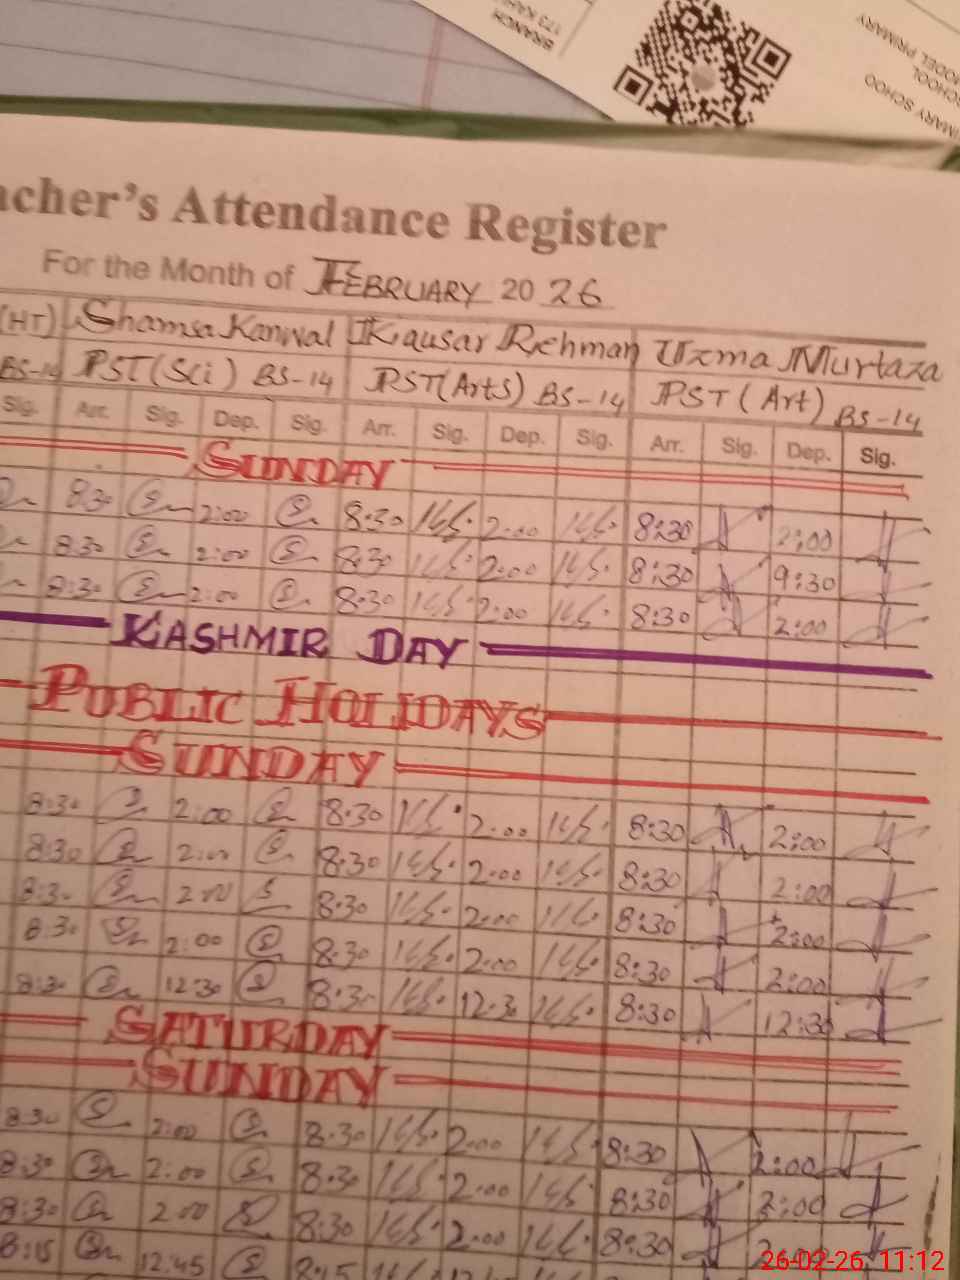 BRANCH
173 KAH
MODEL PRIMARY
SCHOOL
IMARY SCHOO
acher's Attendance Register
For the Month of FEBRUARY 2026
(HT) Shamsa Kanwal Kausar Rehman Uzma Murtaza
BS-14 PST(Sci) BS-14 PST(Arts) BS-14 PST (Art) BS-14
Sig. Arr. Sig. Dep. Sig. Arr. Sig. Dep. Sig. Arr. Sig. Dep. Sig.
SUNDAY
8:30 2:00 8:30 2:00 8:30 2:00
8:30 2:00 8:30 2:00 8:30 9:30
8:30 2:00 8:30 2:00 8:30 2:00
KASHMIR DAY
PUBLIC HOLIDAYS
SUNDAY
8:30 2:00 8:30 2:00 8:30 2:00
8:30 2:00 8:30 2:00 8:30 2:00
8:30 2:00 8:30 2:00 8:30 2:00
8:30 2:00 8:30 2:00 8:30 2:00
8:30 12:30 8:30 12:30 8:30 12:30
SATURDAY
SUNDAY
8:30 2:00 8:30 2:00 8:30 2:00
8:30 2:00 8:30 2:00 8:30 2:00
8:30 2:00 8:30 2:00 8:30 2:00
8:15 12:45 8:15
26-02-26 11:12